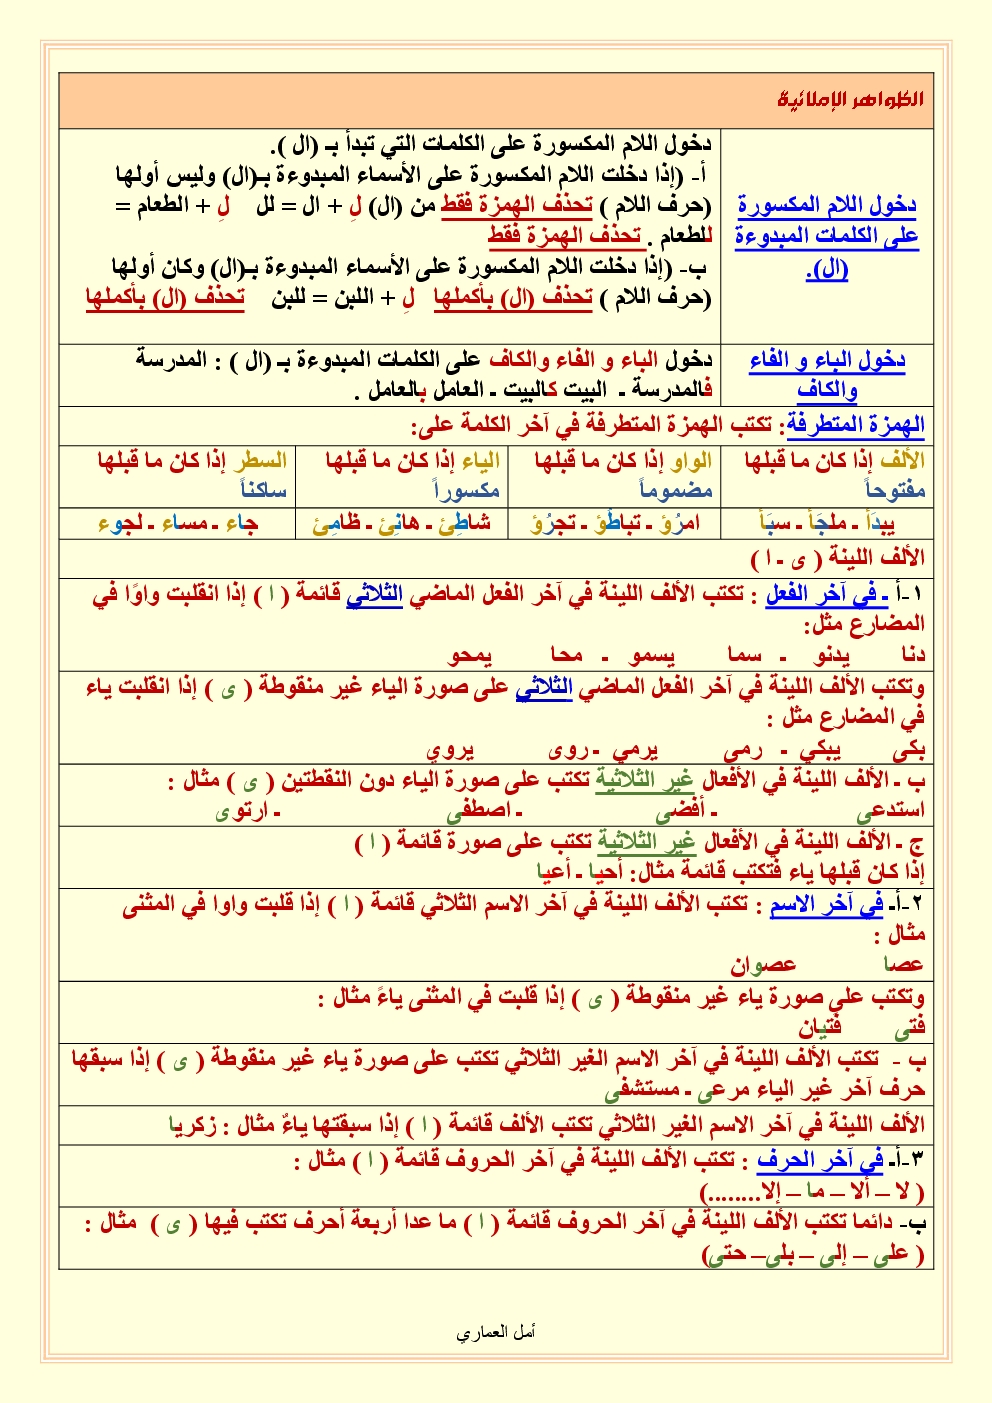 الظواهر الإملائية
دخول اللام المكسورة
على الكلمات المبدوءة
(ال).
دخول اللام المكسورة على الكلمات التي تبدأ بـ (ال ).
أ- (إذا دخلت اللام المكسورة على الأسماء المبدوءة بـ(ال) وليس أولها
(حرف اللام ) تحذف الهمزة فقط من (ال) لِ + ال = لل لِ + الطعام =
للطعام . تحذف الهمزة فقط
ب- (إذا دخلت اللام المكسورة على الأسماء المبدوءة بـ(ال) وكان أولها
(حرف اللام ) تحذف (ال) بأكملها لِ + اللبن = للبن تحذف (ال) بأكملها
دخول الباء و الفاء
والكاف
دخول الباء و الفاء والكاف على الكلمات المبدوءة بـ (ال ) : المدرسة
فالمدرسة ـ البيت كالبيت ـ العامل بالعامل .
الهمزة المتطرفة: تكتب الهمزة المتطرفة في آخر الكلمة على:
الألف إذا كان ما قبلها
مفتوحاً
الواو إذا كان ما قبلها
مضموماً
الياء إذا كان ما قبلها
مكسوراً
السطر إذا كان ما قبلها
ساكناً
يبدَأ ـ ملجَأ ـ سبَأ
امرُؤ ـ تباطُؤ ـ تجرُؤ
شاطِئ ـ هانِئ ـ ظامِئ
جاء ـ مساء ـ لجوء
الألف اللينة ( ى ـ ا )
١-أ ـ في آخر الفعل : تكتب الألف اللينة في آخر الفعل الماضي الثلاثي قائمة ( ا ) إذا انقلبت واوًا في
المضارع مثل:
دنا يدنو ـ سما يسمو ـ محا يمحو
وتكتب الألف اللينة في آخر الفعل الماضي الثلاثي على صورة الياء غير منقوطة ( ى ) إذا انقلبت ياء
في المضارع مثل :
بكى يبكي ـ رمى يرمي ـ روى يروي
ب ـ الألف اللينة في الأفعال غير الثلاثية تكتب على صورة الياء دون النقطتين ( ى ) مثال :
استدعى ـ أفضى ـ اصطفى ـ ارتوى
ج ـ الألف اللينة في الأفعال غير الثلاثية تكتب على صورة قائمة ( ا )
إذا كان قبلها ياء فتكتب قائمة مثال: أحيا ـ أعيا
٢-أـ في آخر الاسم : تكتب الألف اللينة في آخر الاسم الثلاثي قائمة ( ا ) إذا قلبت واوا في المثنى
مثال :
عصا عصوان
وتكتب على صورة ياء غير منقوطة ( ى ) إذا قلبت في المثنى ياءً مثال :
فتى فتيان
ب - تكتب الألف اللينة في آخر الاسم الغير الثلاثي تكتب على صورة ياء غير منقوطة ( ى ) إذا سبقها
حرف آخر غير الياء مرعى ـ مستشفى
الألف اللينة في آخر الاسم الغير الثلاثي تكتب الألف قائمة ( ا ) إذا سبقتها ياءٌ مثال : زكريا
٣-أـ في آخر الحرف : تكتب الألف اللينة في آخر الحروف قائمة ( ا ) مثال :
( لا – ألا – ما – إلا........)
ب- دائما تكتب الألف اللينة في آخر الحروف قائمة ( ا ) ما عدا أربعة أحرف تكتب فيها ( ى ) مثال :
( على – إلى – بلى– حتى)
أمل العماري